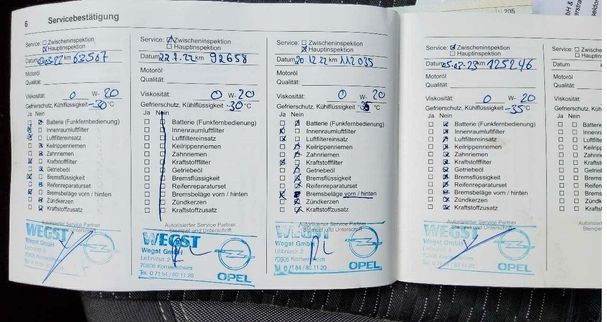 6 Servicebestätigung
Service: Zwischeninspektion
Hauptinspektion
Datum km 63567
Motoröl
Qualität:
Viskosität: 0 W- 20
Gefrierschutz, Kühlflüssigkeit -30 °C
Ja Nein
Batterie (Funkfernbedienung)
Innenraumluftfilter
Luftfiltereinsatz
Keilrippenriemen
Zahnriemen
Kraftstofffilter
Getriebeöl
Bremsflüssigkeit
Reifenreparaturset
Bremsbeläge vorn / hinten
Zündkerzen
Kraftstoffzusatz
Autorisierter Service Partner
WEGST
Wegst GmbH
OPEL
Service: Zwischeninspektion
Hauptinspektion
Datum 22.7.22 km 92658
Motoröl
Qualität:
Viskosität: 0 W- 20
Gefrierschutz, Kühlflüssigkeit -30 °C
Ja Nein
Batterie (Funkfernbedienung)
Innenraumluftfilter
Luftfiltereinsatz
Keilrippenriemen
Zahnriemen
Kraftstofffilter
Getriebeöl
Bremsflüssigkeit
Reifenreparaturset
Bremsbeläge vorn / hinten
Zündkerzen
Kraftstoffzusatz
Autorisierter Service Partner
Stempel und Unterschrift
WEGST
Wegst GmbH
70806 Kornwestheim
Tel. 0 71 54 / 80 11 20
OPEL
Service: Zwischeninspektion
Hauptinspektion
Datum 20.12.22 km 112035
Motoröl
Qualität:
Viskosität: 0 W- 20
Gefrierschutz, Kühlflüssigkeit °C
Ja Nein
Batterie (Funkfernbedienung)
Innenraumluftfilter
Luftfiltereinsatz
Keilrippenriemen
Zahnriemen
Kraftstofffilter
Getriebeöl
Bremsflüssigkeit
Reifenreparaturset
Bremsbeläge vorn / hinten
Zündkerzen
Kraftstoffzusatz
Autorisierter Service Partner
Stempel und Unterschrift
WEGST
Wegst GmbH
OPEL
Service: Zwischeninspektion
Hauptinspektion
Datum km 125246
Motoröl
Qualität:
Viskosität: 0 W- 20
Gefrierschutz, Kühlflüssigkeit -35 °C
Ja Nein
Batterie (Funkfernbedienung)
Innenraumluftfilter
Luftfiltereinsatz
Keilrippenriemen
Zahnriemen
Kraftstofffilter
Getriebeöl
Bremsflüssigkeit
Reifenreparaturset
Bremsbeläge vorn / hinten
Zündkerzen
Kraftstoffzusatz
Autorisierter Service Partner
Stempel und Unterschrift
WEGST
Wegst GmbH
OPEL
Service:
Datum
Motoröl
Qualität:
Viskosität:
Gefrierschutz
Ja Nein
205